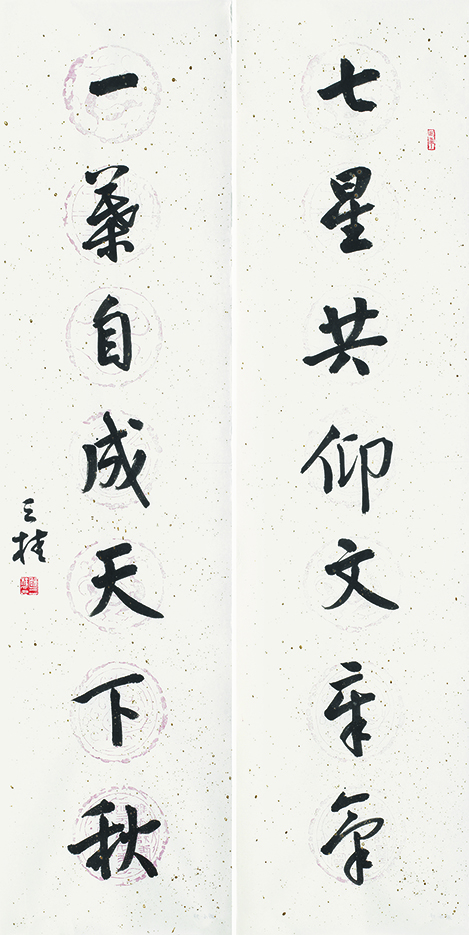 七星共仰文章氣
一葉自成天下秋
三桂